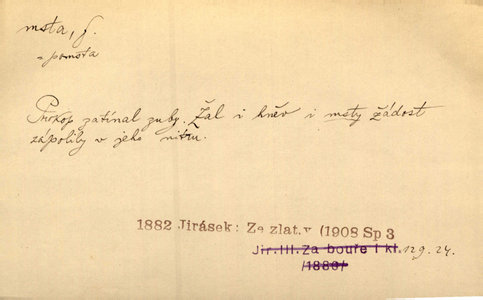 msta, f.
= pomsta
Prokop zatínal zuby. Žal i hněv i msty žádost
zápolily v jeho nitru.
1882 Jirásek: Ze zlat. v (1908 Sp 3
Jir.III.Za bouře i kl. 129. 24.
/1880/